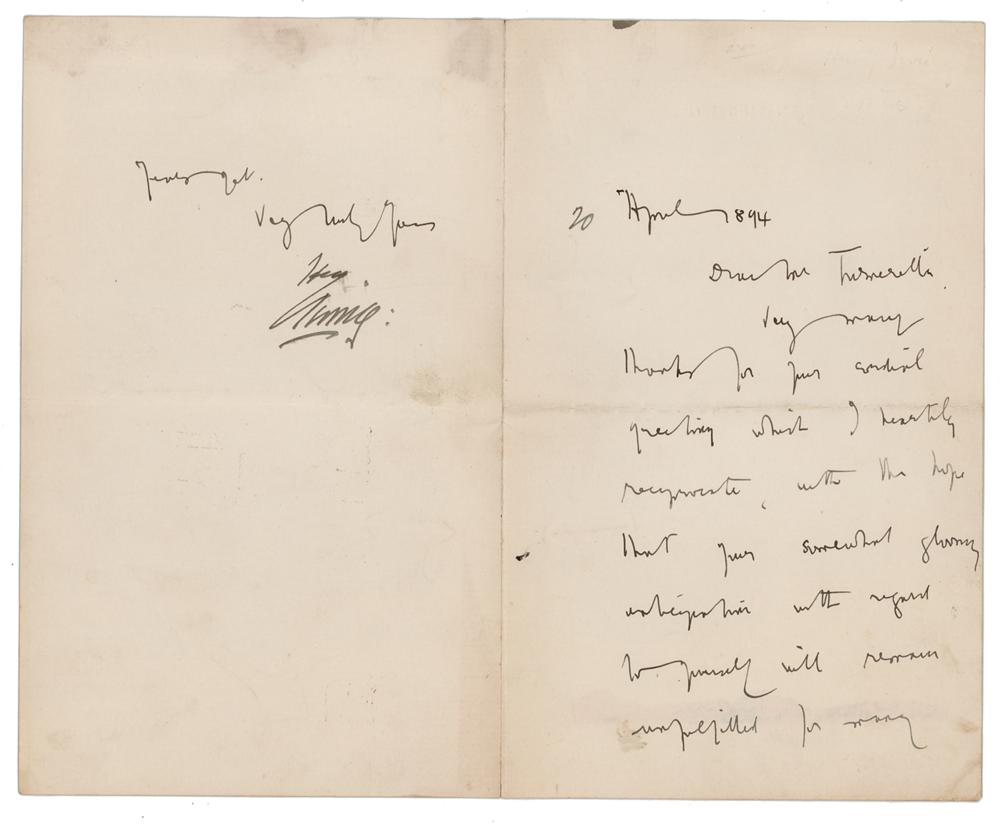 20 April 1894
Dear Mr Turnerelli.
Very many
thanks for your cordial
greeting which I heartily
reciprocate, with the hope
that your somewhat gloomy
anticipation with regard
to yourself will remain
unfulfilled for many
years yet.
Very truly yours
Hy
Irving: